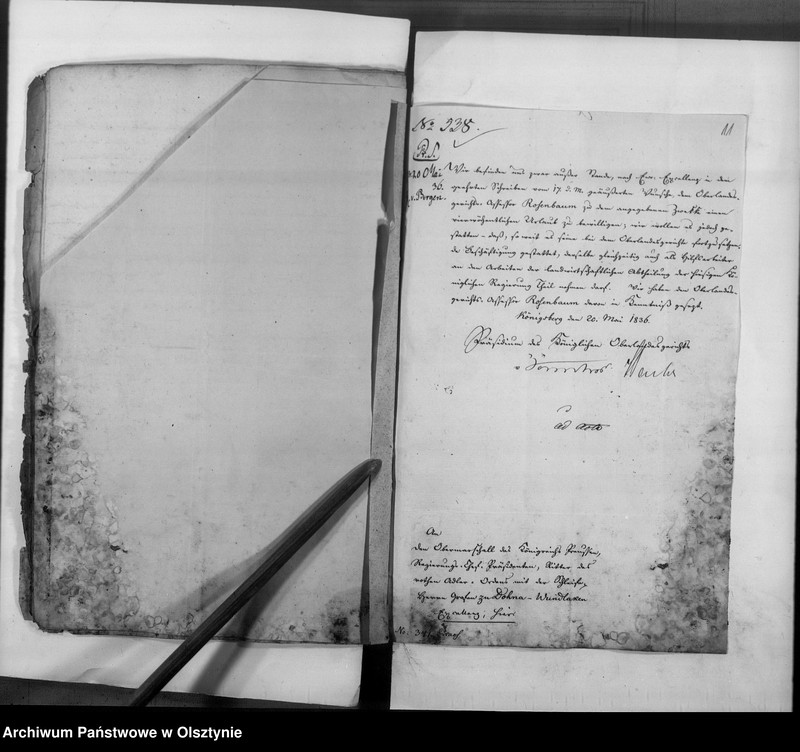 No 938.
11
P. S.
20 Mai
36.
Wir befinden uns zwar außer Stande, nach Ew. Excellenz in dem
geehrten Schreiben vom 17. d. M. geäußerten Wunsche dem Oberlandes-
gerichts-Assessor Rosenbaum zu dem angegebenen Zwecke einen
vierwöchentlichen Urlaub zu bewilligen; wir wollen es jedoch ge-
statten, daß, so weit es seine bei dem Oberlandesgerichte fortzusetzen-
de Beschäftigung gestattet, derselbe gleichzeitig auch als Hülfsarbeiter
an den Arbeiten der landwirthschaftlichen Abtheilung der hiesigen Kö-
niglichen Regierung Theil nehmen darf. Wir haben den Oberlandes-
gerichts-Assessor Rosenbaum davon in Kenntniß gesetzt.
Königsberg den 20. Mai 1836.
Präsidium des Königlichen Oberlandesgerichts
ad acta
An
den Obermarschall des Königreichs Preussen,
Regierungs-Chef-Präsidenten, Ritter des
rothen Adler-Ordens mit der Schleife,
Herrn Grafen zu Dohna-Wundlaken
Excellenz, hier.
Archiwum Państwowe w Olsztynie